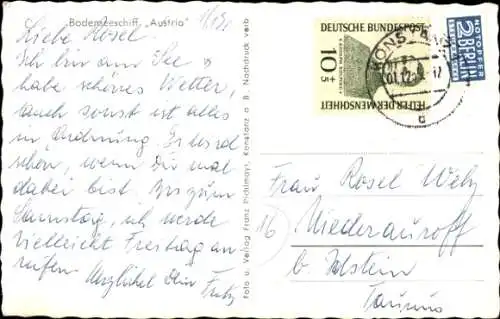 Bodenseeschiff „Austria"
Liebe Rosel.
Ich bin am See u
habe schönes Wetter,
auch sonst ist alles
in Ordnung
sehen, wenn Du mal
dabei bist. Bis zum
Samstag, ich werde
vielleicht Freitag an
rufen. Herzlichst Dein Fritz
Foto u. Verlag Franz Pichlmayr, Konstanz a. B. Nachdruck verb
DEUTSCHE BUNDESPOST
10+5
HELFER DER MENSCHHEIT
KONSTANZ
d
NOTOPFER
2 BERLIN
STEUERMARKE
Frau Rosel Welz
16 Niederauroff
b. Idstein
Taunus